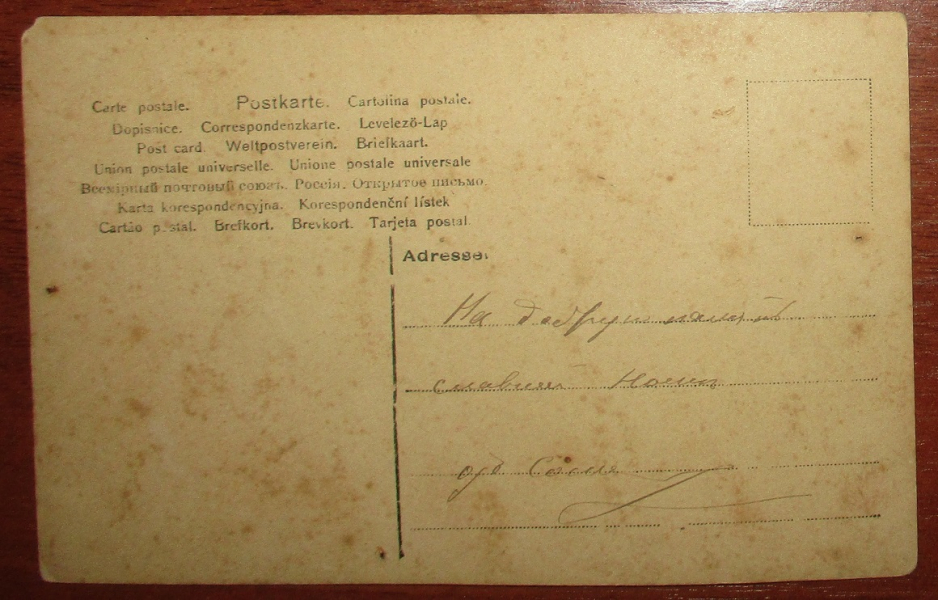 Carte postale. Postkarte. Cartolina postale.
Dopisnice. Correspondenzkarte. Levelező-Lap
Post card. Weltpostverein. Briefkaart.
Union postale universelle. Unione postale universale
Всемірный почтовый союзъ. Россія. Открытое письмо.
Karta korespondencyjna. Korespondenční lístek
Cartão postal. Brefkort. Brevkort. Tarjeta postal.
Adresse:
На добрую память
славной
отъ